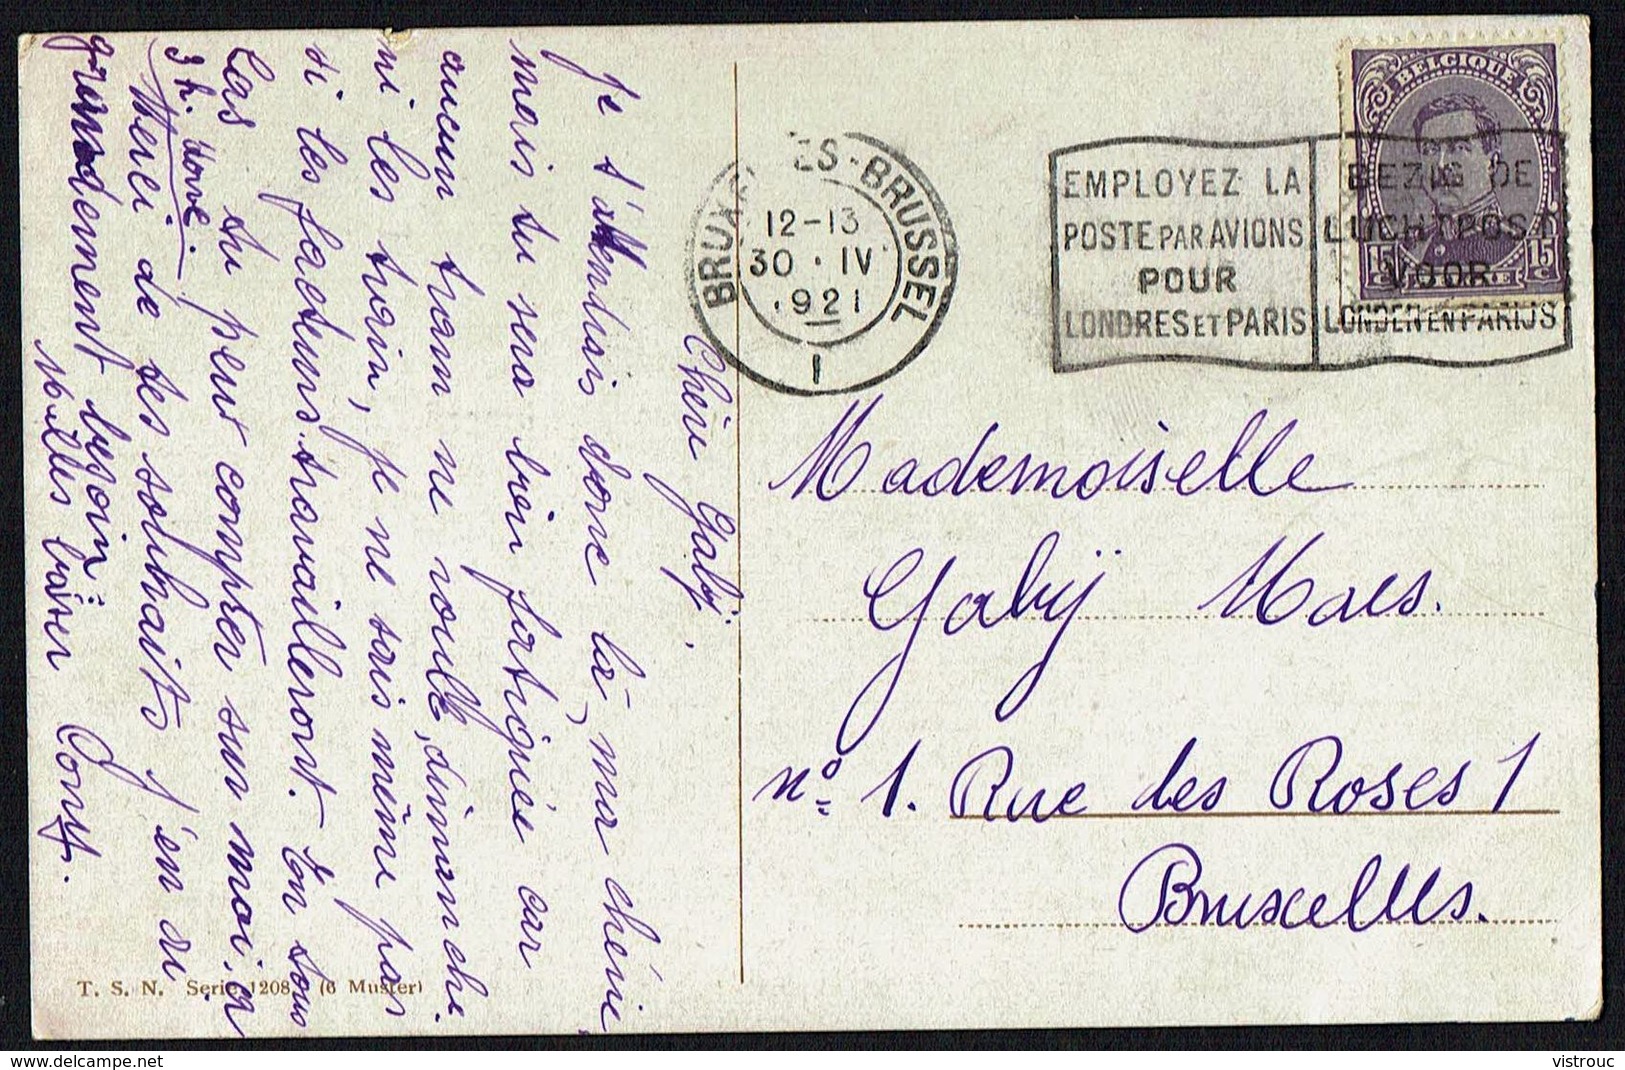 Chère Gaby.
Je t'attendais donc là, ma chérie,
mais tu sera bien fatiguée car
aucun tram ne roule, dimanche
ni les train, je ne sais même pas
si les facteurs travailleront. En tous
cas tu peux compter sur moi, à
3 h.
Merci de tes souhaits j'en ai
grandement besoin.
Milles baiser
BRUXELLES-BRUSSEL
12-13
30 · IV
1921
1
EMPLOYEZ LA
POSTE PAR AVIONS
POUR
LONDRES ET PARIS
BEZIG DE
LUCHTPOST
VOOR
LONDEN EN PARIJS
BELGIQUE
15 C
15 C
Mademoiselle
Gaby Maes.
n° 1. Rue des Roses 1
Bruxelles.
T. S. N. Serie 1208 (6 Muster)
www.delcampe.net
vistrouc